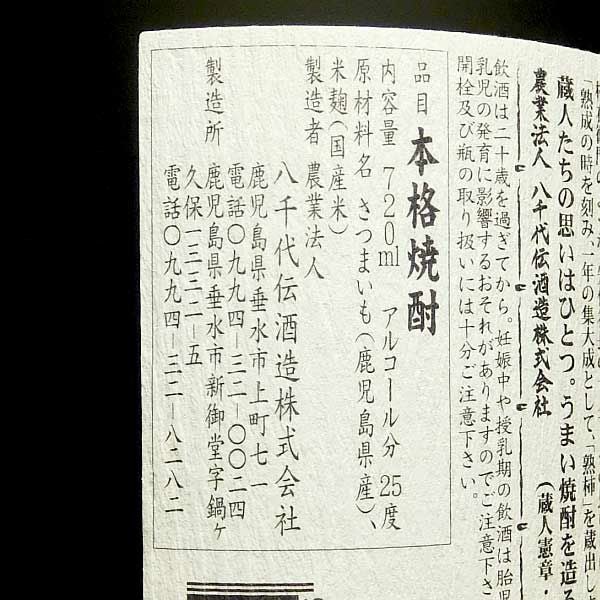 「熟成の時を刻み、一年の集大成として、「熟柿」を蔵出し
蔵人たちの思いはひとつ。うまい焼酎を造る
農業法人 八千代伝酒造株式会社 (蔵人憲章・
飲酒は二十歳を過ぎてから。妊娠中や授乳期の飲酒は胎児
乳児の発育に影響するおそれがありますのでご注意下さ
開栓及び瓶の取り扱いには十分ご注意下さい。
品目 本格焼酎
内容量 720ml アルコール分 25度
原材料名 さつまいも(鹿児島県産)、
米麹(国産米)
製造者 農業法人
八千代伝酒造株式会社
鹿児島県垂水市上町七一
電話〇九九四ー三二ー〇〇二四
製造所 鹿児島県垂水市新御堂字鍋ヶ
久保一三三二ー五
電話〇九九四ー三二ー八二八二